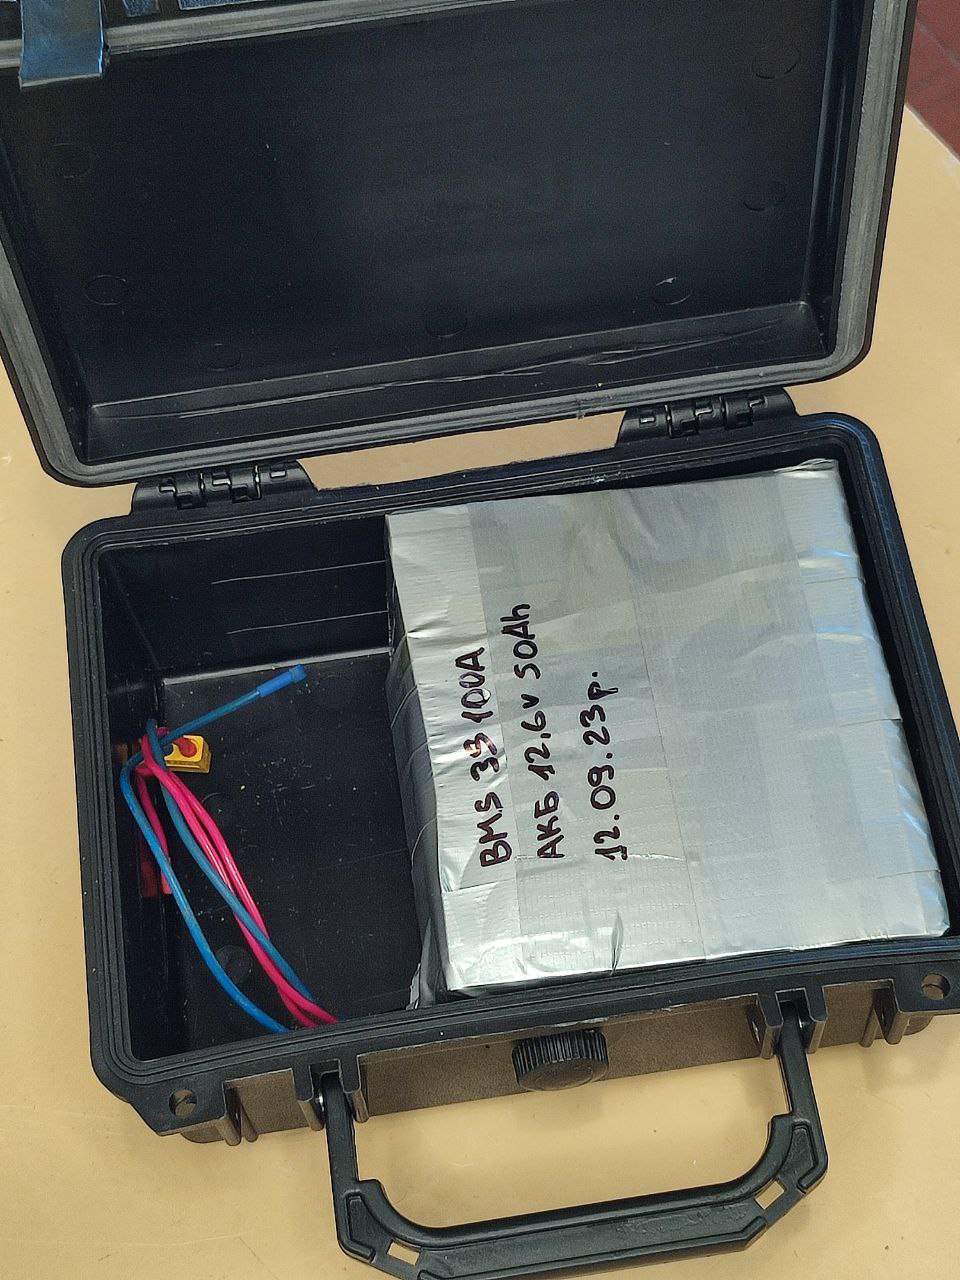 BMS 3S 100A
АКБ 12.6v 50Ah
12.09.23р.